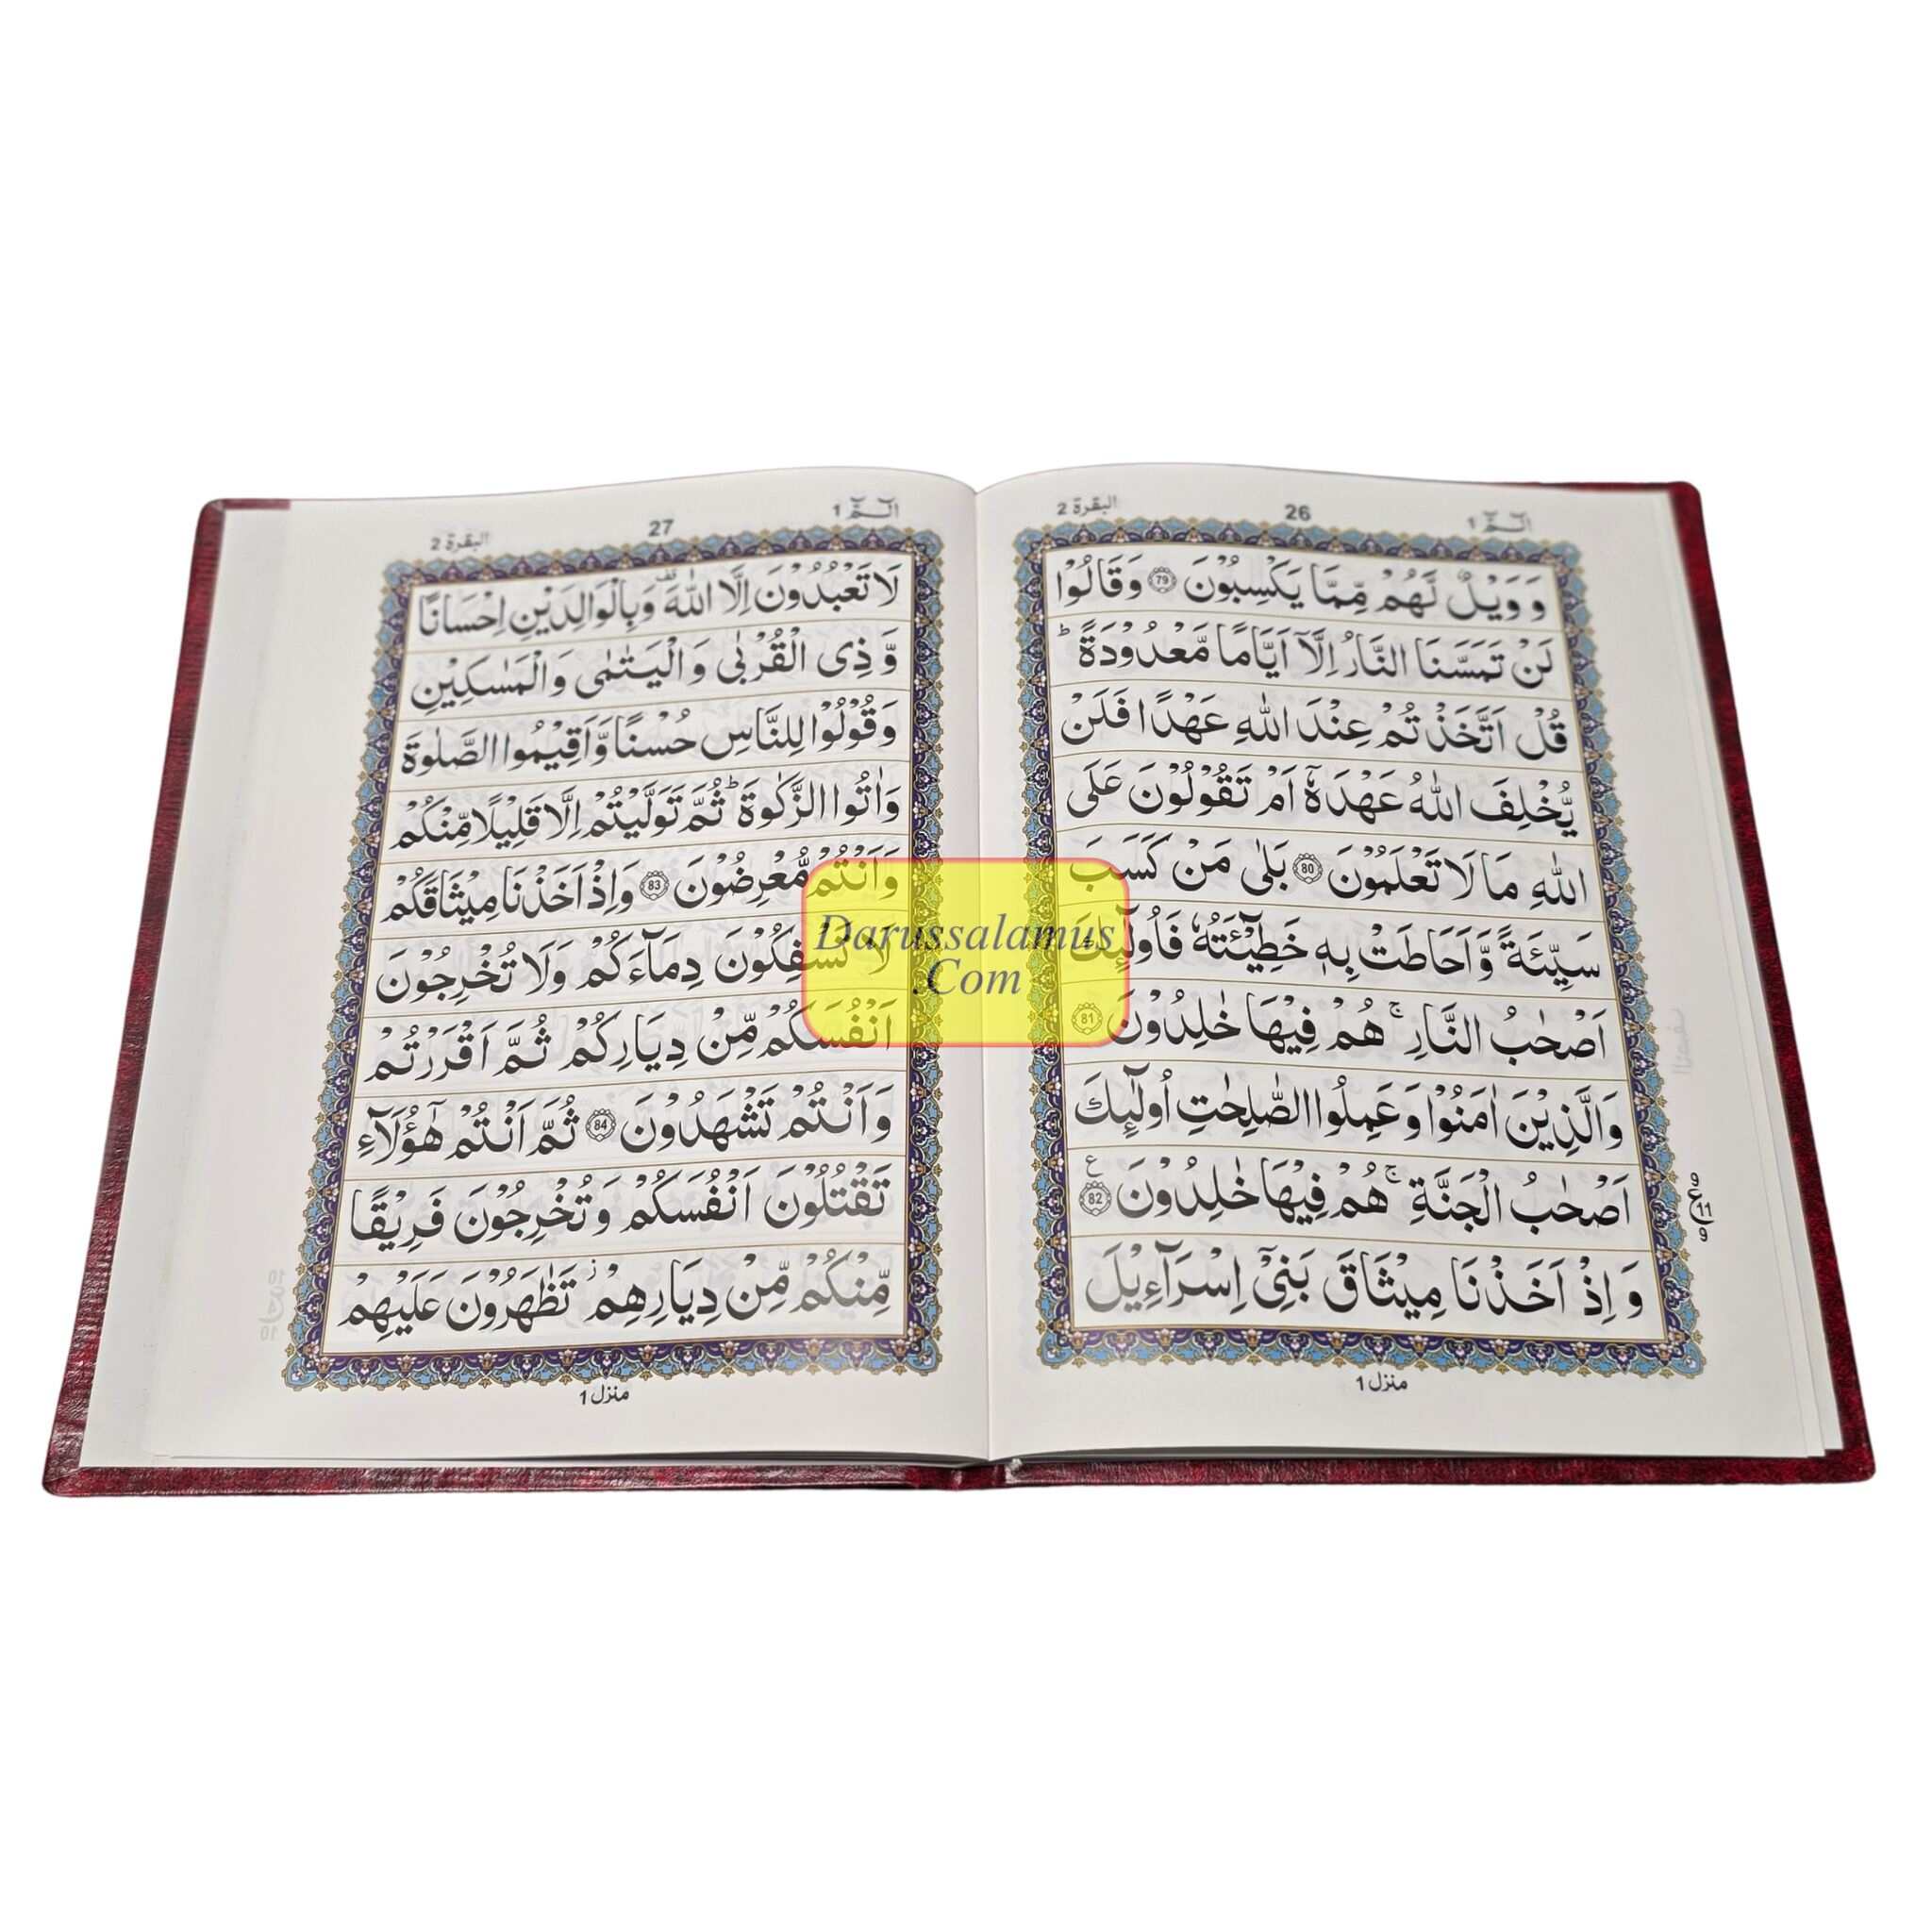 الٓمّٓ 1
26
البقرة 2
وَ وَيْلٌ لَّهُمْ مِّمَّا يَكْسِبُوْنَ 79 وَقَالُوْا
لَنْ تَمَسَّنَا النَّارُ اِلَّآ اَيَّامًا مَّعْدُوْدَةًؕ
قُلْ اَتَّخَذْتُمْ عِنْدَ اللّٰهِ عَهْدًا فَلَنْ
يُّخْلِفَ اللّٰهُ عَهْدَهٗٓ اَمْ تَقُوْلُوْنَ عَلَى
اللّٰهِ مَا لَا تَعْلَمُوْنَ 80 بَلٰى مَنْ كَسَبَ
سَيِّئَةً وَّاَحَاطَتْ بِهٖ خَطِيْٓئَتُهٗ فَاُولٰٓئِكَ
اَصْحٰبُ النَّارِۚ هُمْ فِيْهَا خٰلِدُوْنَ 81
وَالَّذِيْنَ اٰمَنُوْا وَعَمِلُوا الصّٰلِحٰتِ اُولٰٓئِكَ
اَصْحٰبُ الْجَنَّةِۚ هُمْ فِيْهَا خٰلِدُوْنَ 82 ع
وَ اِذْ اَخَذْنَا مِيْثَاقَ بَنِيْٓ اِسْرَآءِيْلَ
منزل 1
الٓمّٓ 1
27
البقرة 2
لَا تَعْبُدُوْنَ اِلَّا اللّٰهَ وَبِالْوَالِدَيْنِ اِحْسَانًا
وَّ ذِى الْقُرْبٰى وَ الْيَتٰمٰى وَ الْمَسٰكِيْنِ
وَقُوْلُوْا لِلنَّاسِ حُسْنًا وَّاَقِيْمُوا الصَّلٰوةَ
وَاٰتُوا الزَّكٰوةَؕ ثُمَّ تَوَلَّيْتُمْ اِلَّا قَلِيْلًا مِّنْكُمْ
وَاَنْتُمْ مُّعْرِضُوْنَ 83 وَاِذْ اَخَذْنَا مِيْثَاقَكُمْ
لَا تَسْفِكُوْنَ دِمَآءَكُمْ وَلَا تُخْرِجُوْنَ
اَنْفُسَكُمْ مِّنْ دِيَارِكُمْ ثُمَّ اَقْرَرْتُمْ
وَاَنْتُمْ تَشْهَدُوْنَ 84 ثُمَّ اَنْتُمْ هٰٓؤُلَآءِ
تَقْتُلُوْنَ اَنْفُسَكُمْ وَ تُخْرِجُوْنَ فَرِيْقًا
مِّنْكُمْ مِّنْ دِيَارِهِمْؗ تَظٰهَرُوْنَ عَلَيْهِمْ
منزل 1
Darussalamus
.Com